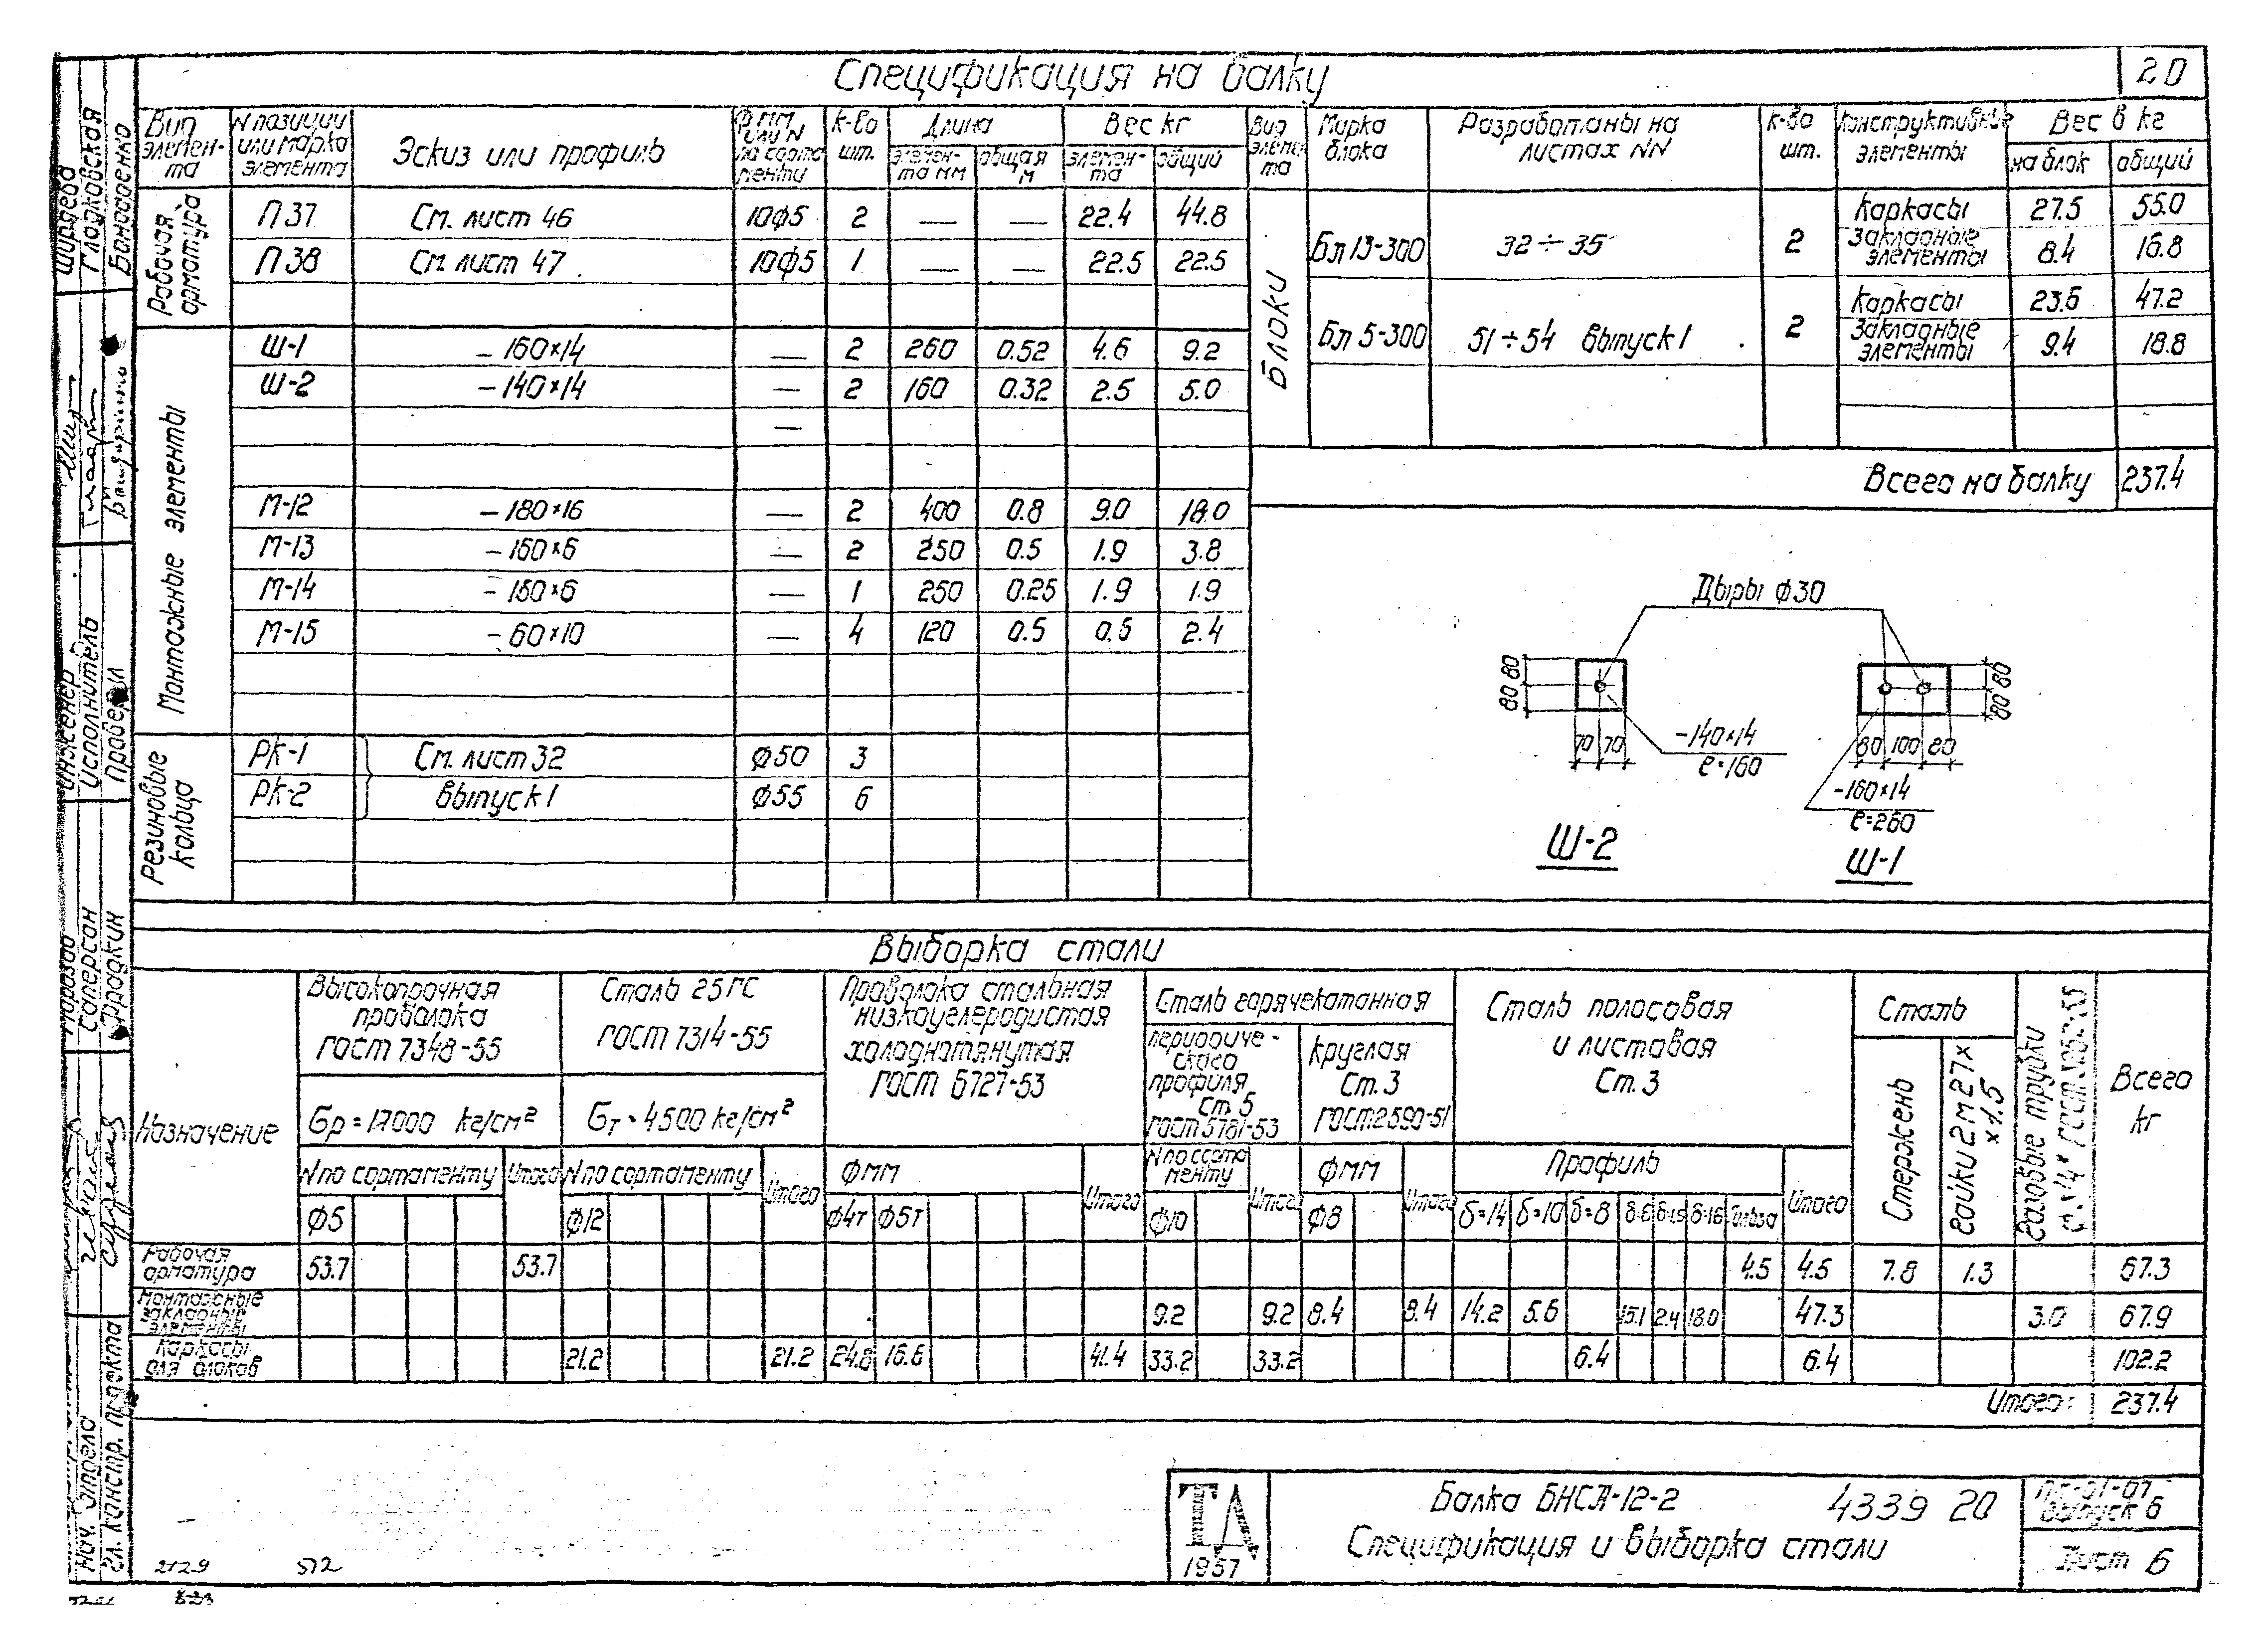 Спецификация на балку
20
Вид элемен-та | N позиции или марка элемента | Эскиз или профиль | Ф мм или N по сорта менту | к-во шт. | Длина элемен-та мм | Длина общая м | Вес кг элемен-та | Вес кг общий
Рабочая арматура
П 37 | См. лист 46 | 10ф5 | 2 | — | — | 22.4 | 44.8
П 38 | См. лист 47 | 10ф5 | 1 | — | — | 22.5 | 22.5
Монтажные элементы
Ш-1 | – 160×14 | — | 2 | 260 | 0.52 | 4.6 | 9.2
Ш-2 | – 140×14 | — | 2 | 160 | 0.32 | 2.5 | 5.0
—
М-12 | – 180×16 | — | 2 | 400 | 0.8 | 9.0 | 18.0
М-13 | – 160×6 | — | 2 | 250 | 0.5 | 1.9 | 3.8
М-14 | – 160×6 | — | 1 | 250 | 0.25 | 1.9 | 1.9
М-15 | – 60×10 | — | 4 | 120 | 0.5 | 0.6 | 2.4
Резиновые кольца
РК-1 | См. лист 32 | ф50 | 3
РК-2 | Выпуск 1 | ф55 | 6
Вид элемен та | Марка блока | Разработаны на листах NN | к-во шт. | Конструктивные элементы | Вес в кг на блок | Вес в кг общий
Блоки
Бл 13-300 | 32 ÷ 35 | 2 | Каркасы | 27.5 | 55.0
Закладные элементы | 8.4 | 16.8
Бл 5-300 | 51 ÷ 54 Выпуск 1 | 2 | Каркасы | 23.6 | 47.2
Закладные элементы | 9.4 | 18.8
Всего на балку | 237.4
Дыры ф30
80 80
70 70
-140×14
ℓ=160
Ш-2
80 80
80 100 80
-160×14
ℓ=260
Ш-1
Выборка стали
Назначение
Высокопрочная проволока ГОСТ 7348-55
Gр = 17000 кг/см²
N по сортаменту | Итого
ф5
Сталь 25ГС ГОСТ 7314-55
Gт = 4500 кг/см²
N по сортаменту | Итого
ф12
Проволока стальная низкоуглеродистая холоднотянутая ГОСТ 6727-53
Ф мм | Итого
ф4т | ф5т
Сталь горячекатанная
периодиче-ского профиля Ст. 5 ГОСТ 5781-53
N по сорта менту | Итого
ф10
Круглая Ст. 3 ГОСТ 2590-51
Ф мм | Итого
ф8
Сталь полосовая и листовая Ст. 3
Профиль | Итого
δ=14 | δ=10 | δ=8 | δ=6 | δ=1.5 | δ=16 | Гильза
Сталь
Стержень | Гайки 2М27× ×1.5
Газовые трубки
Всего кг
Рабочая арматура | 53.7 | 53.7 | 4.5 | 4.5 | 7.8 | 1.3 | 67.3
Монтажные закладные элементы | 9.2 | 9.2 | 8.4 | 8.4 | 14.2 | 5.6 | 15.1 | 2.4 | 18.0 | 47.3 | 3.0 | 67.9
Каркасы для блоков | 21.2 | 21.2 | 24.8 | 16.6 | 41.4 | 33.2 | 33.2 | 6.4 | 6.4 | 102.2
Итого: | 237.4
ТД
1957
Балка БНСА-12-2
4339 20
Спецификация и выборка стали
ПК-01-07
Выпуск 6
Лист 6
2129
572
Ширяева
Гладковская
Бондаренко
Инженер
Исполнитель
Проверил
Морозов
Саперсон
Фрадкин
Нач. Отдела
Гл. констр. проекта